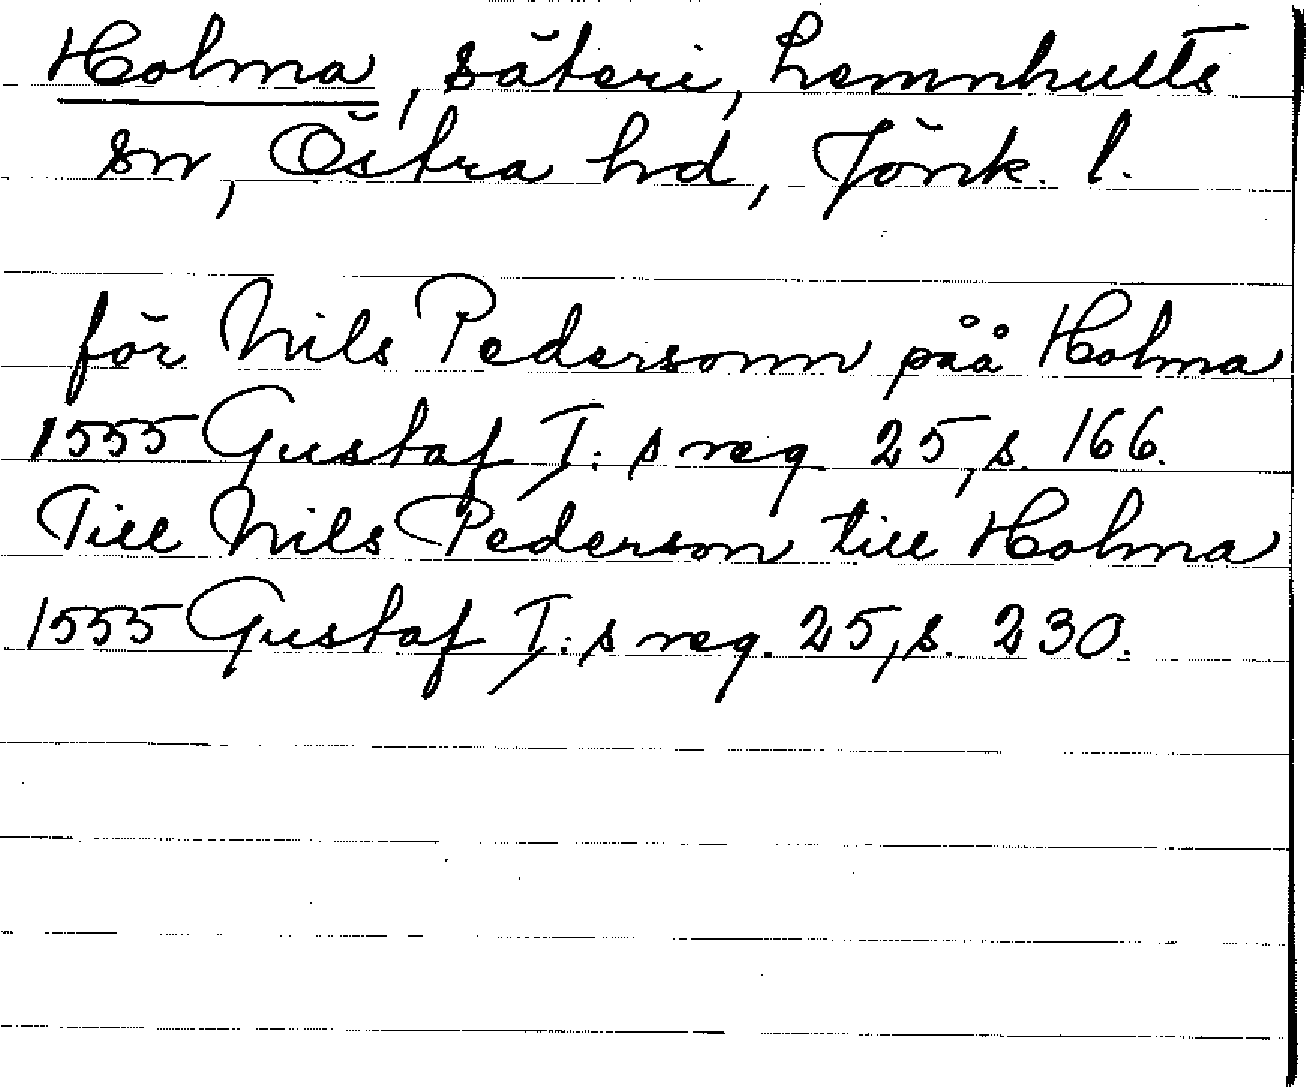 Holma, säteri, Lemnhults
sn, Östra hd, Jönk. l.
för Nils Pedersonn påå Holma
1555 Gustaf I: s reg 25, s. 166.
Till Nils Pederson till Holma
1555 Gustaf I: s reg. 25, s. 230.